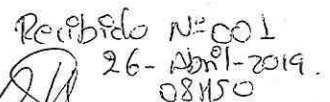 Recibido Nº 001
26 - Abril - 2019.
08H50